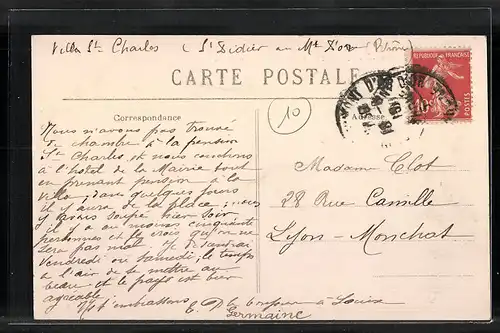 Villa St Charles (St Didier au Mt d'or Rhône)
CARTE POSTALE
RÉPUBLIQUE FRANÇAISE
10
POSTES
10
Correspondance
Adresse
Nous n'avons pas trouvé
de chambre à la pension
St Charles et nous couchons
à l'hôtel de la Mairie tout
en prenant pension à la
villa, dans quelques jours
il y aura de la place
j'y avais soupé hier soir
il y a au moins cinquante
personnes et je crois qu'on ne
sera pas mal. Je descendrai
vendredi ou samedi, le temps
a l'air de se mettre au
beau et le pays est bien
agréable.
Je t'embrasse
à Louise
Germaine
Madame Clot
28 Rue Camille
Lyon-Monchat